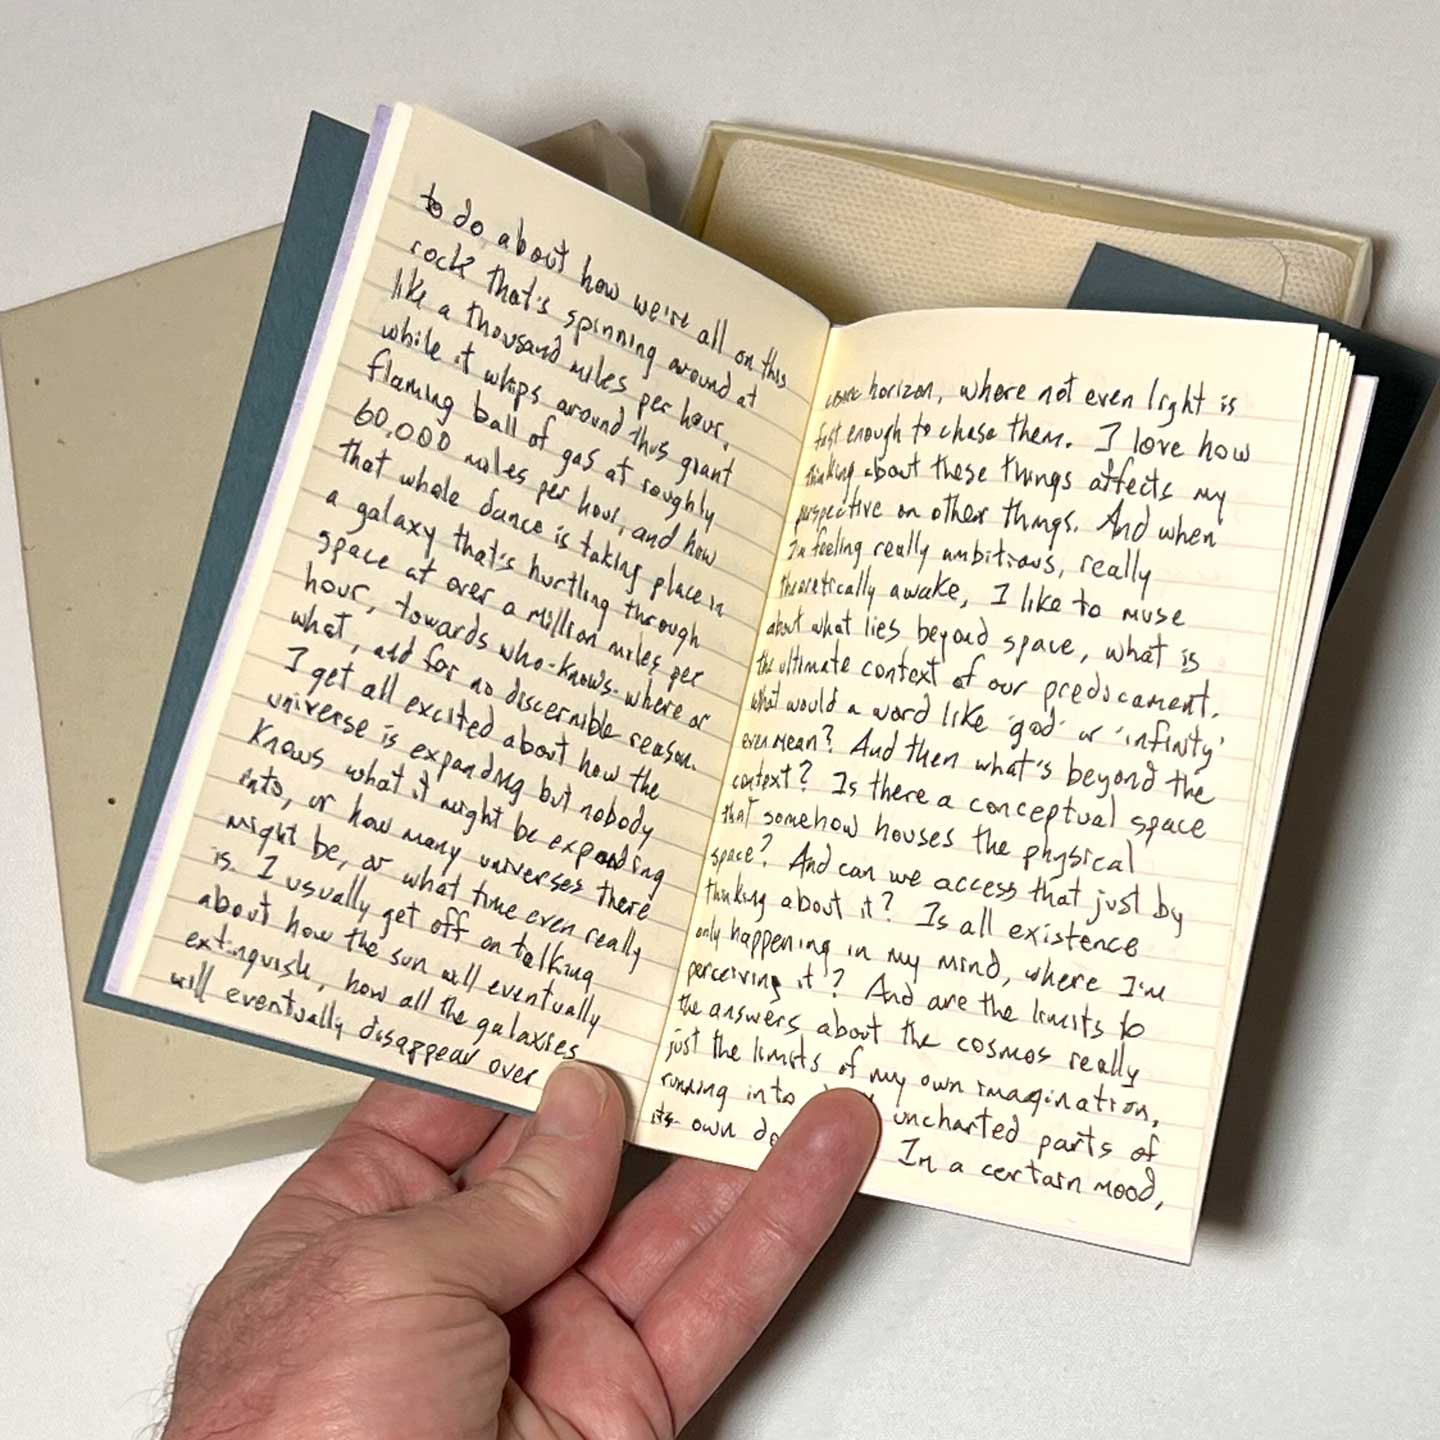 to do about how we're all on this
rock that's spinning around at
like a thousand miles per hour,
while it whips around this giant
flaming ball of gas at roughly
60,000 miles per hour, and how
that whole dance is taking place in
a galaxy that's hurtling through
space at over a million miles per
hour, towards who-knows-where or
what, and for no discernible reason.
I get all excited about how the
universe is expanding but nobody
knows what it might be expanding
into, or how many universes there
might be, or what time even really
is. I usually get off on talking
about how the sun will eventually
extinguish, how all the galaxies
will eventually disappear over
cosmic horizon, where not even light is
fast enough to chase them. I love how
thinking about these things affects my
perspective on other things. And when
I'm feeling really ambitious, really
theoretically awake, I like to muse
about what lies beyond space, what is
the ultimate context of our predicament.
What would a word like 'god' or 'infinity'
even mean? And then what's beyond the
context? Is there a conceptual space
that somehow houses the physical
space? And can we access that just by
thinking about it? Is all existence
only happening in my mind, where I'm
perceiving it? And are the limits to
the answers about the cosmos really
just the limits of my own imagination,
running into uncharted parts of
its own In a certain mood,